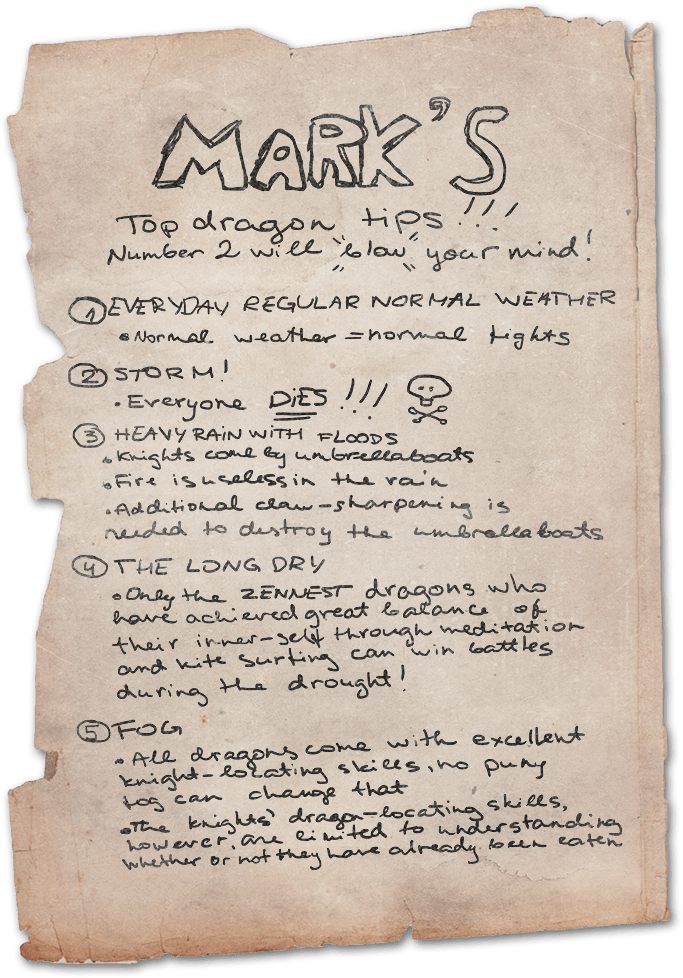 MARK'S
Top dragon tips!!!
Number 2 will "blow" your mind!
1 EVERYDAY REGULAR NORMAL WEATHER
• Normal weather = normal fights
2 STORM!
• Everyone DIES!!!
3 HEAVY RAIN WITH FLOODS
• Knights come by umbrellaboats
• Fire is useless in the rain
• Additional claw-sharpening is
needed to destroy the umbrellaboats
4 THE LONG DRY
• Only the ZENNEST dragons who
have achieved great balance of
their inner-self through meditation
and kite surfing can win battles
during the drought!
5 FOG
• All dragons come with excellent
knight-locating skills, no puny
fog can change that
• The knights' dragon-locating skills,
however, are limited to understanding
whether or not they have already been eaten